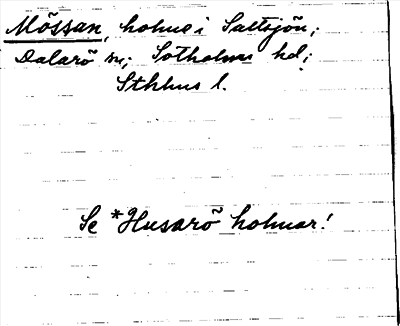 Mössan, holme i Saltsjön;
Dalarö sn; Sotholms hd;
Sthlms l.
Se *Husarö holmar!